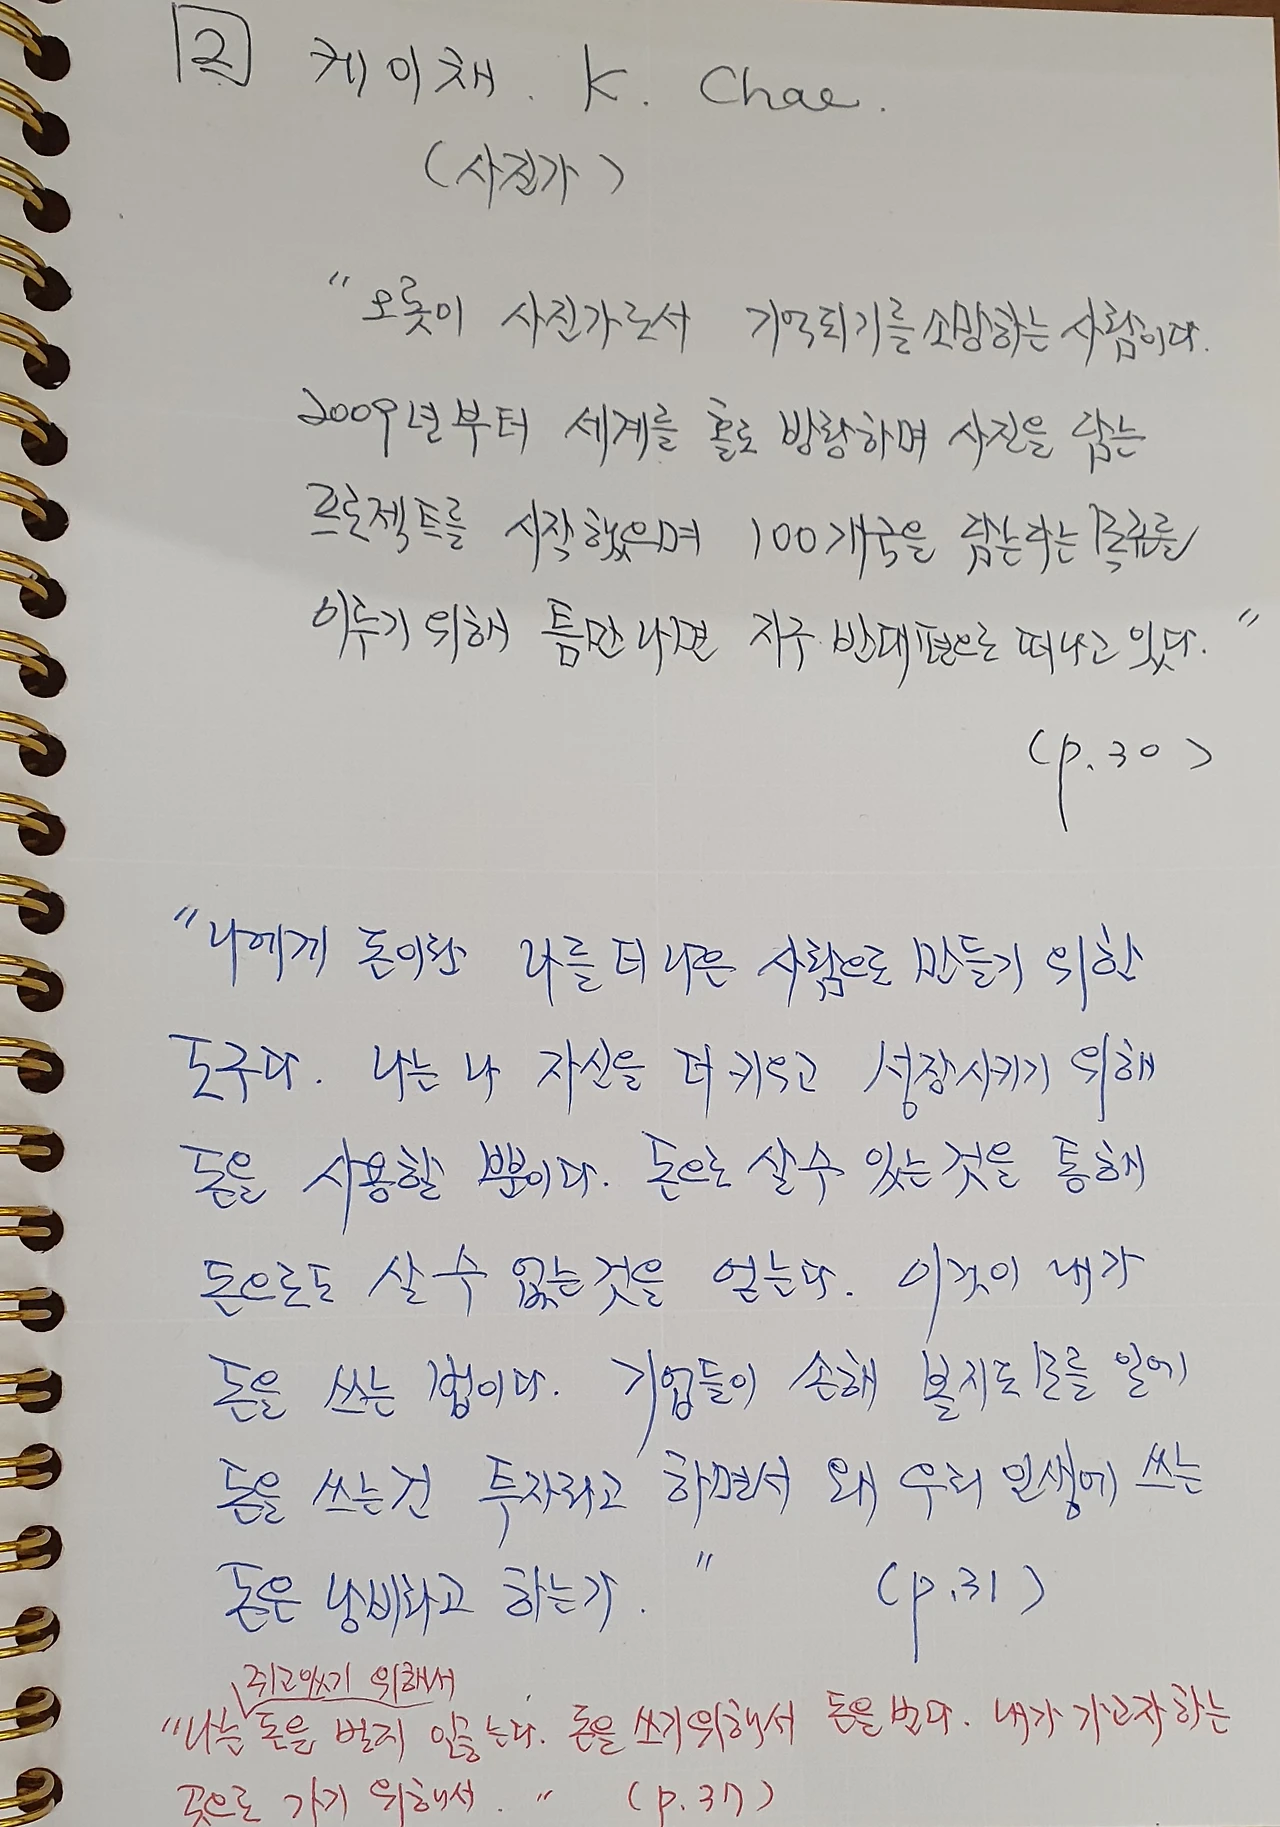 2 케이채. K. Chae.
(사진가)
"오롯이 사진가로서 기억되기를 소망하는 사람이다.
2009년부터 세계를 홀로 방랑하며 사진을 담는
프로젝트를 시작했으며 100개국을 담는다는 목표를
이루기 위해 틈만나면 지구 반대편으로 떠나고 있다."
(p.30)
"나에게 돈이란 나를 더 나은 사람으로 만들기 위한
도구다. 나는 나 자신을 더 키우고 성장시키기 위해
돈을 사용할 뿐이다. 돈으로 살 수 있는 것을 통해
돈으로도 살 수 없는 것을 얻는다. 이것이 내가
돈을 쓰는 법이다. 기업들이 손해 볼지도 모를 일에
돈을 쓰는건 투자라고 하면서 왜 우리 인생에 쓰는
돈은 낭비라고 하는가." (p.31)
쥐고있기 위해서
"나는 돈을 벌지 않는다. 돈을 쓰기위해서 돈을 번다. 내가 가고자 하는
곳으로 가기 위해서." (p.37)